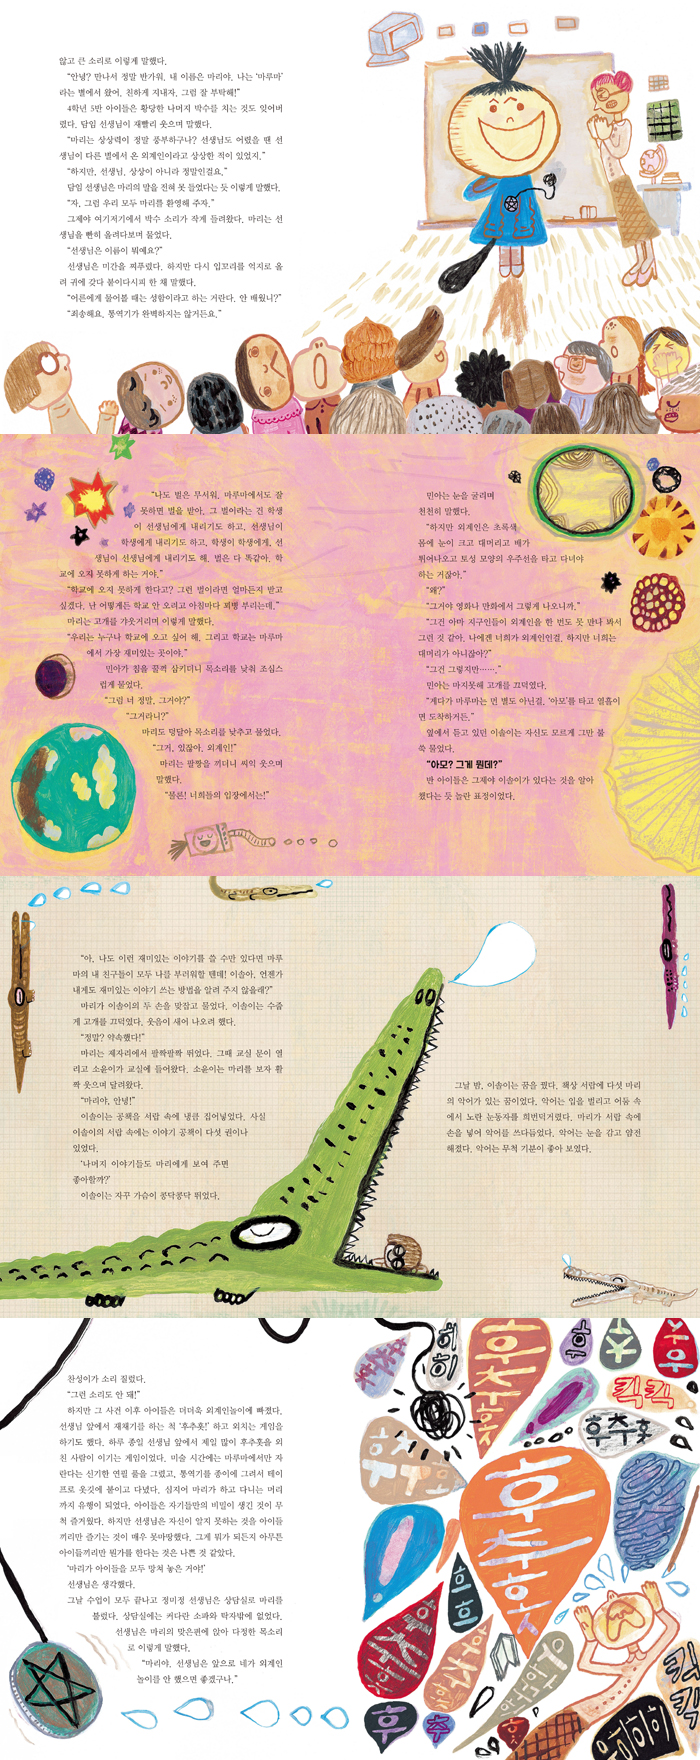 않고 큰 소리로 이렇게 말했다.
“안녕? 만나서 정말 반가워. 내 이름은 마리야. 나는 ‘마루마’
라는 별에서 왔어. 친하게 지내자. 그럼 잘 부탁해!”
4학년 5반 아이들은 황당한 나머지 박수를 치는 것도 잊어버
렸다. 담임 선생님이 재빨리 웃으며 말했다.
“마리는 상상력이 정말 풍부하구나? 선생님도 어렸을 땐 선
생님이 다른 별에서 온 외계인이라고 상상한 적이 있었지.”
“하지만, 선생님, 상상이 아니라 정말인걸요.”
담임 선생님은 마리의 말을 전혀 못 들었다는 듯 이렇게 말했다.
“자, 그럼 우리 모두 마리를 환영해 주자.”
그제야 여기저기에서 박수 소리가 작게 들려왔다. 마리는 선
생님을 빤히 올려다보며 물었다.
“선생님은 이름이 뭐예요?”
선생님은 미간을 찌푸렸다. 하지만 다시 입꼬리를 억지로 올
려 귀에 갖다 붙이다시피 한 채 말했다.
“어른에게 물어볼 때는 성함이라고 하는 거란다. 안 배웠니?”
“죄송해요. 통역기가 완벽하지는 않거든요.”
“나도 벌은 무서워. 마루마에서도 잘
못하면 벌을 받아. 그 벌이라는 건 학생
이 선생님에게 내리기도 하고, 선생님이
학생에게 내리기도 하고, 학생이 학생에게, 선
생님이 선생님에게 내리기도 해. 벌은 다 똑같아. 학
교에 오지 못하게 하는 거야.”
“학교에 오지 못하게 한다고? 그런 벌이라면 얼마든지 받고
싶겠다. 난 어떻게든 학교 안 오려고 아침마다 꾀병 부리는데.”
마리는 고개를 갸웃거리며 이렇게 말했다.
“우리는 누구나 학교에 오고 싶어 해. 그리고 학교는 마루마
에서 가장 재미있는 곳이야.”
민아가 침을 꿀꺽 삼키더니 목소리를 낮춰 조심스
럽게 물었다.
“그럼 너 정말, 그거야?”
“그거라니?”
마리도 덩달아 목소리를 낮추고 물었다.
“그거, 있잖아. 외계인!”
마리는 팔짱을 끼더니 씨익 웃으며
말했다.
“물론! 너희들의 입장에서는!”
민아는 눈을 굴리며
천천히 말했다.
“하지만 외계인은 초록색
몸에 눈이 크고 대머리고 배가
튀어나오고 토성 모양의 우주선을 타고 다녀야
하는 거잖아.”
“왜?”
“그거야 영화나 만화에서 그렇게 나오니까.”
“그건 아마 지구인들이 외계인을 한 번도 못 만나 봐서
그런 것 같아. 나에겐 너희가 외계인인걸. 하지만 너희는
대머리가 아니잖아?”
“그건 그렇지만…….”
민아는 마지못해 고개를 끄덕였다.
“게다가 마루마는 먼 별도 아닌걸. ‘아모’를 타고 열흘이
면 도착하거든.”
옆에서 듣고 있던 이솔이는 자신도 모르게 그만 불
쑥 물었다.
“아모? 그게 뭔데?”
반 아이들은 그제야 이솔이가 있다는 것을 알아
챘다는 듯 놀란 표정이었다.
“아, 나도 이런 재미있는 이야기를 쓸 수만 있다면 마루
마의 내 친구들이 모두 나를 부러워할 텐데! 이솔아, 언젠가
내게도 재미있는 이야기 쓰는 방법을 알려 주지 않을래?”
마리가 이솔이의 두 손을 맞잡고 물었다. 이솔이는 수줍
게 고개를 끄덕였다. 웃음이 새어 나오려 했다.
“정말? 약속했다!”
마리는 제자리에서 팔짝팔짝 뛰었다. 그때 교실 문이 열
리고 소윤이가 교실에 들어왔다. 소윤이는 마리를 보자 활
짝 웃으며 달려왔다.
“마리야, 안녕!”
이솔이는 공책을 서랍 속에 냉큼 집어넣었다. 사실
이솔이의 서랍 속에는 이야기 공책이 다섯 권이나
있었다.
‘나머지 이야기들도 마리에게 보여 주면
좋아할까?’
이솔이는 자꾸 가슴이 콩닥콩닥 뛰었다.
그날 밤, 이솔이는 꿈을 꿨다. 책상 서랍에 다섯 마리
의 악어가 있는 꿈이었다. 악어는 입을 벌리고 어둠 속
에서 노란 눈동자를 희번덕거렸다. 마리가 서랍 속에
손을 넣어 악어를 쓰다듬었다. 악어는 눈을 감고 얌전
해졌다. 악어는 무척 기분이 좋아 보였다.
찬성이가 소리 질렀다.
“그런 소리도 안 돼!”
하지만 그 사건 이후 아이들은 더더욱 외계인놀이에 빠졌다.
선생님 앞에서 재채기를 하는 척 ‘후추홋!’ 하고 외치는 게임을
하기도 했다. 하루 종일 선생님 앞에서 제일 많이 후추홋을 외
친 사람이 이기는 게임이었다. 미술 시간에는 마루마에서만 자
란다는 신기한 연필 풀을 그렸고, 통역기를 종이에 그려서 테이
프로 옷깃에 붙이고 다녔다. 심지어 마리가 하고 다니는 머리
까지 유행이 되었다. 아이들은 자기들만의 비밀이 생긴 것이 무
척 즐거웠다. 하지만 선생님은 자신이 알지 못하는 것을 아이들
끼리만 즐기는 것이 매우 못마땅했다. 그게 뭐가 되든지 아무튼
아이들끼리만 뭔가를 한다는 것은 나쁜 것 같았다.
‘마리가 아이들을 모두 망쳐 놓은 거야!’
선생님은 생각했다.
그날 수업이 모두 끝나고 정미정 선생님은 상담실로 마리를
불렀다. 상담실에는 커다란 소파와 탁자밖에 없었다.
선생님은 마리의 맞은편에 앉아 다정한 목소리
로 이렇게 말했다.
“마리야, 선생님은 앞으로 네가 외계인
놀이를 안 했으면 좋겠구나.”
후추홋
킥킥
후추홋
후추홋
후
추
킥킥